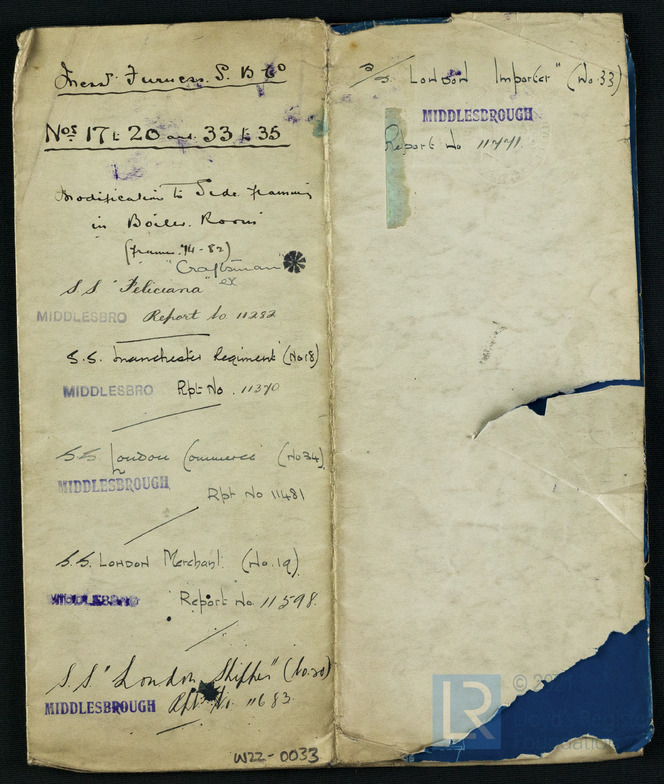 Messrs Furness. S. B Co
Nos. 17 to 20 and 33 to 35
Modification to Side framing
in Boiler Room
(frames 74-82)
"Craftsman"
ex
S.S "Feliciana"
MIDDLESBRO Report No 11282
S.S. Manchester Regiment (No 18)
MIDDLESBRO Rpt No. 11370
S.S. London Commerce (No 34)
MIDDLESBROUGH
Rpt No 11481
S.S. London Merchant. (No. 19)
MIDDLESBRO Report No. 11598.
S.S "London Shipper" (No. 20)
MIDDLESBROUGH Rpt No. 11683
W22-0033
S.S. London Importer" (No. 33)
MIDDLESBROUGH
Report No 11771.
LR
Foundation